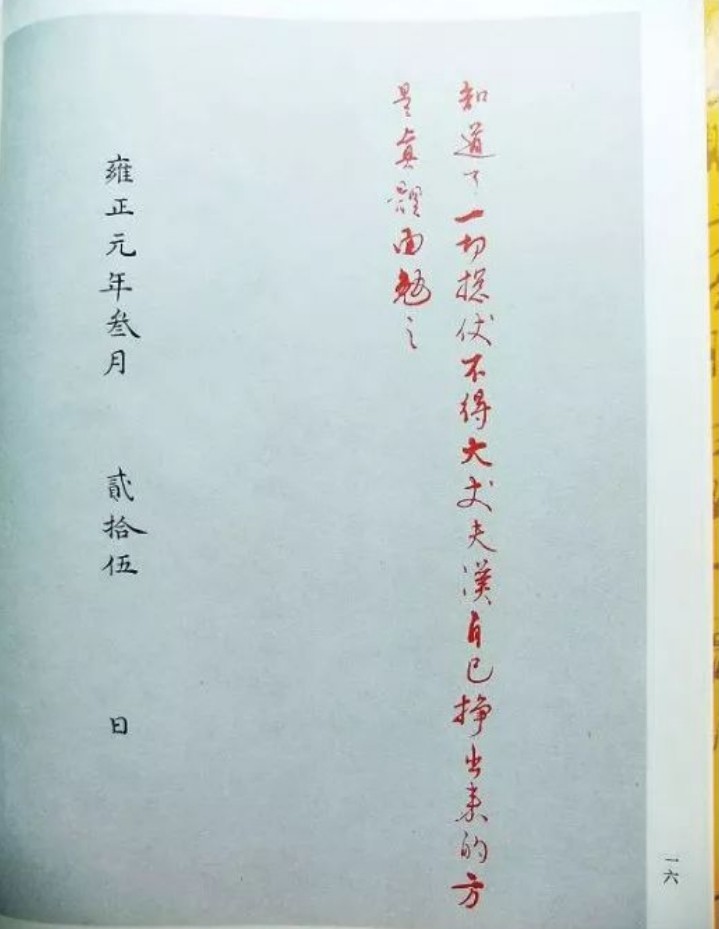 知道了一切摠仗不得大丈夫漢自己掙出来的方
是真體面勉之
雍正元年叄月 貳拾伍 日
一六